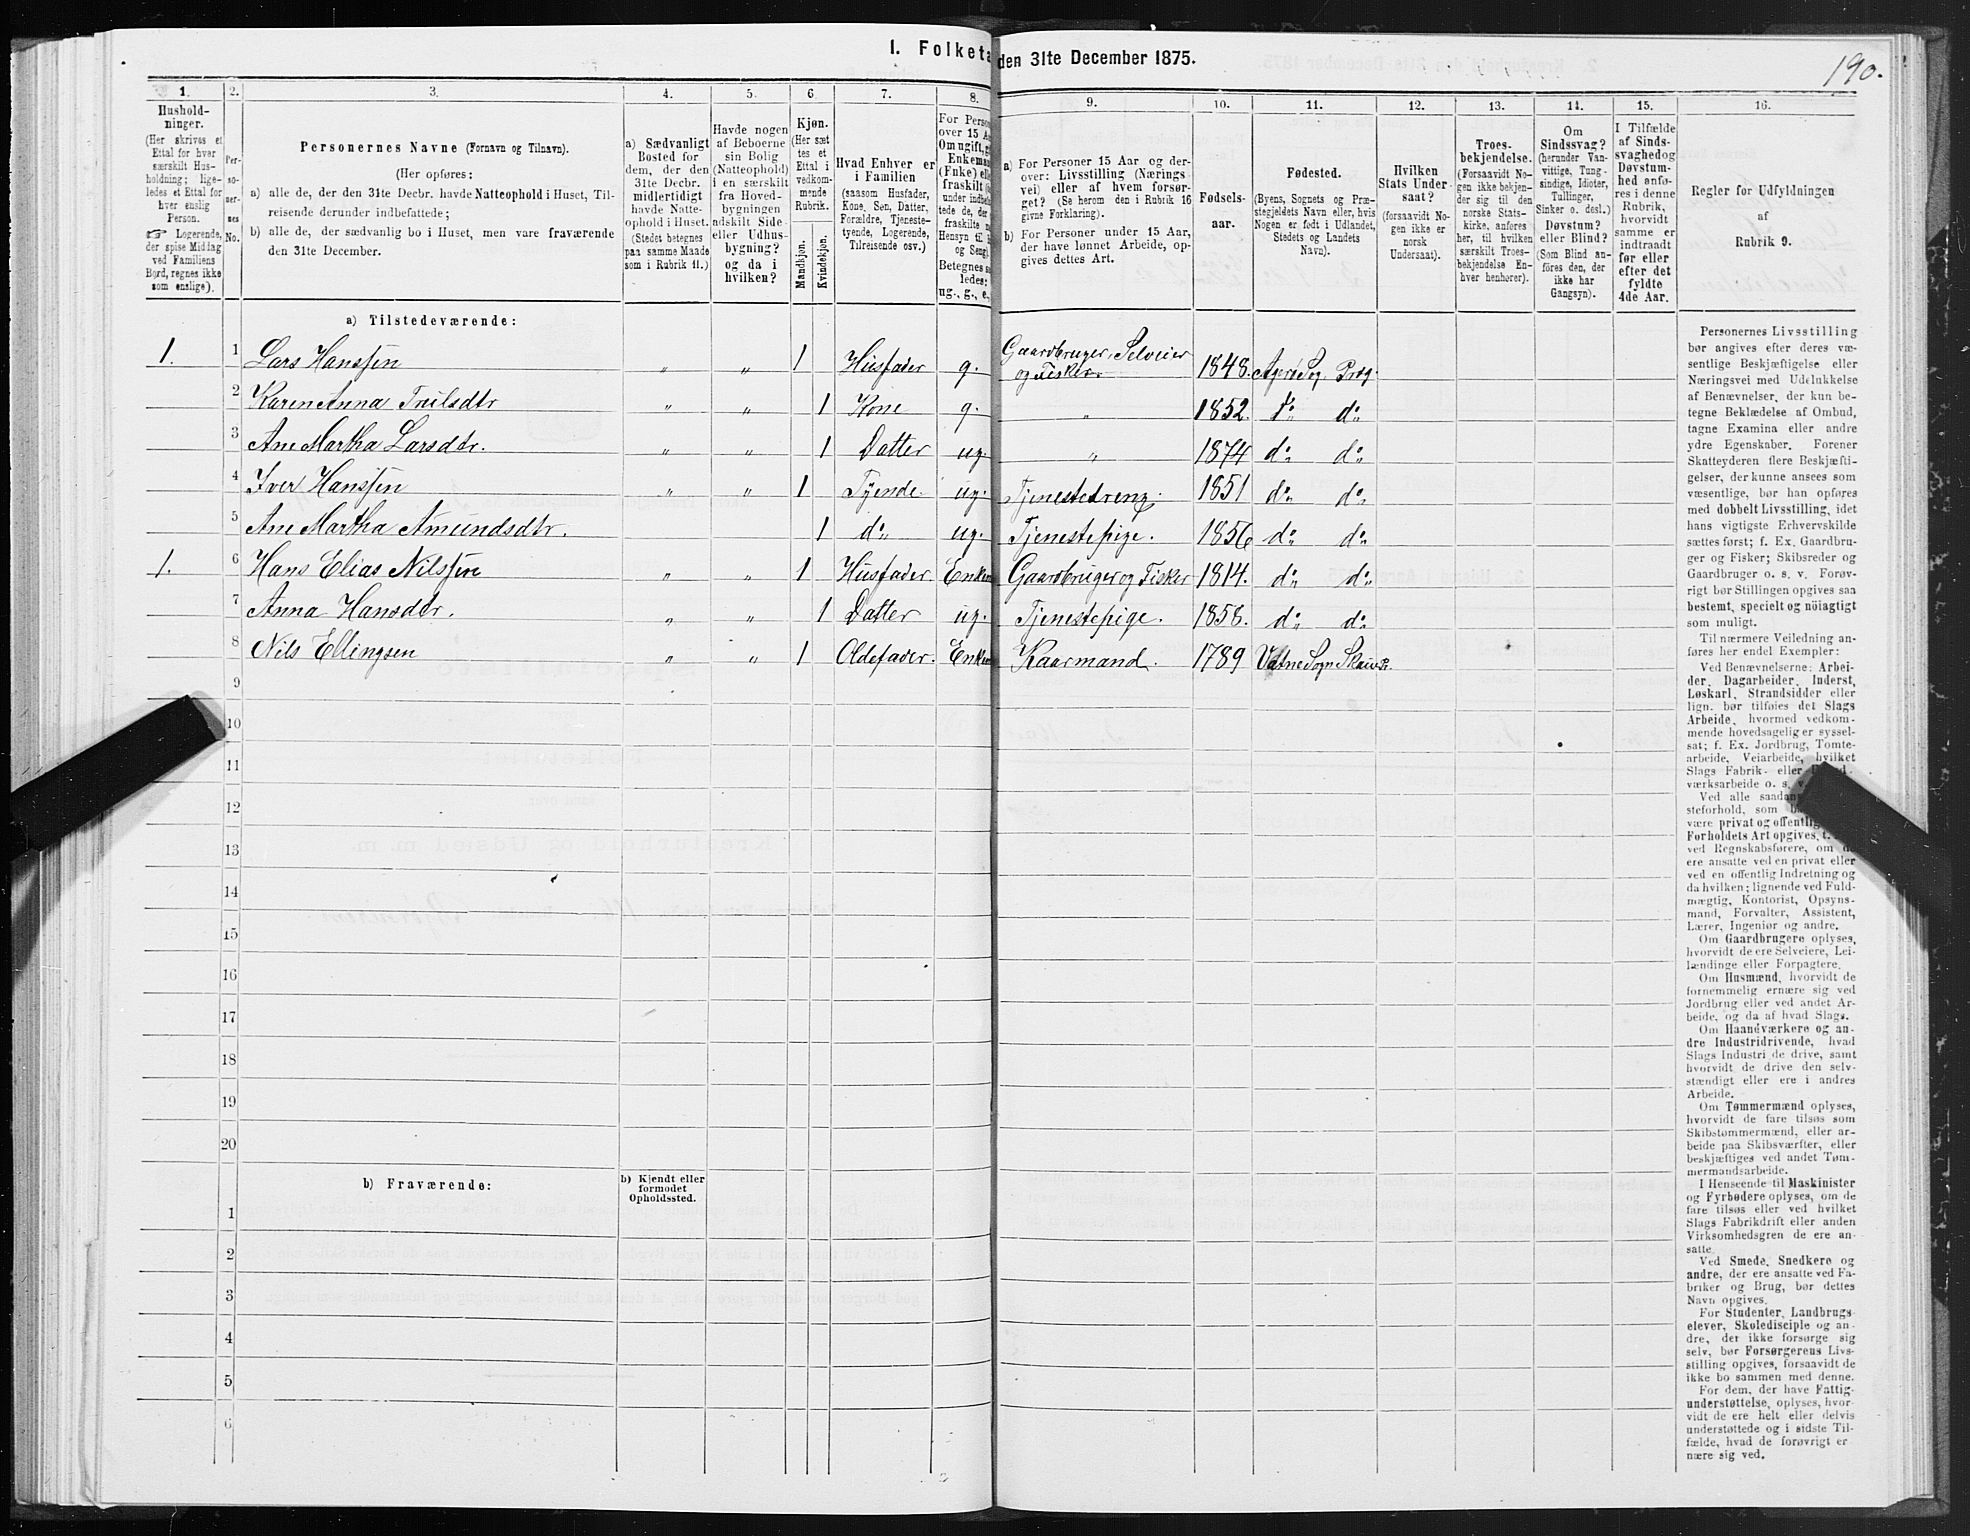 190.
I. Folketa
den 31te December 1875.
1. 2. 3. 4. 5. 6. 7. 8. 9. 10. 11. 12. 13. 14. 15. 16.
Hushold-
ninger.
(Her skrives et
Ettal for hver
særskilt Hus-
holdning; lige-
ledes et Ettal for
hver enslig
Person.
☞ Logerende,
der spise Middag
ved Familiens
Bord, regnes ikke
som enslige).
Per-
so-
ner-
nes
No.
Personernes Navne (Fornavn og Tilnavn).
(Her opføres:
a) alle de, der den 31te Decbr. havde Natteophold i Huset, Til-
reisende derunder indbefattede;
b) alle de, der sædvanlig bo i Huset, men vare fraværende
den 31te December.
a) Sædvanligt
Bosted for
dem, der den
31te Decbr.
midlertidigt
havde Natte-
ophold i Huset.
(Stedet betegnes
paa samme Maade
som i Rubrik 11.)
Havde nogen
af Beboerne
sin Bolig
(Natteophold)
i en særskilt
fra Hoved-
bygningen
adskilt Side-
eller Udhus-
bygning?
og da i
hvilken?
Kjøn.
(Her sæt-
tes et
Ettal i
vedkom-
mende
Rubrik.
Mandkjøn.
Kvindekjøn.
Hvad Enhver er
i Familien
(saasom Husfader,
Kone, Søn, Datter,
Forældre, Tjeneste-
tyende, Logerende,
Tilreisende osv.)
For Person
over 15 A
Om ugift, g
Enkema
(Enke) elle
fraskilt
under indbe
tede de, der
fraskilte
Hensyn til
og Seng).
Betegnes s
ledes:
ug., g., e.,
a) For Personer 15 Aar og der-
over: Livsstilling (Nærings-
vei) eller af hvem forsør-
get? (Se herom den i Rubrik 16
givne Forklaring).
b) For Personer under 15 Aar,
der have lønnet Arbeide, op-
gives dettes Art.
Fødsels-
aar.
Fødested.
(Byens, Sognets og Præ-
stegjeldets Navn eller, hvis
Nogen er født i Udlandet,
Stedets og Landets
Navn).
Hvilken
Stats Under-
saat?
(forsaavidt No-
gen ikke er
norsk
Undersaat).
Troes-
bekjendelse.
(Forsaavidt No-
gen ikke bekjen-
der sig til den
norske Stats-
kirke, anføres
her, til hvilken
særskilt Troes-
bekjendelse En-
hver henhører).
Om
Sindssvag?
(herunder Van-
vittige, Tung-
sindige, Idioter,
Tullinger,
Sinker o. desl.)
Døvstum?
eller Blind?
(Som Blind an-
føres den, der
ikke har
Gangsyn).
I Tilfælde
af Sinds-
svaghed og
Døvstum-
hed anfø-
res i denne
Rubrik,
hvorvidt
samme er
indtraadt
før eller
efter det
fyldte
4de Aar.
Regler for Udfyldningen
af
Rubrik 9.
a) Tilstedeværende:
1. 1 Lars Hanssen „ „ 1 Husfader g. Gaardbruger, Selveier og Fisker 1848. Agerø Sog. Præg.
2 Karen Anna Troilsdtr „ „ 1 Kone g. „ 1852. do do
3 Ane Martha Larsdtr. „ „ 1 Datter ug. „ 1874 do do
4 Iver Hanssen „ „ 1 Tyende. ug. Tjenestedreng. 1851 do do
5 Ane Martha Amundsdtr. 1 do ug. Tjenestepige. 1856 do do
1. 6 Hans Elias Nilssen „ „ 1 Husfader Enkem Gaardbruger og Fisker 1814. do do
7 Anna Hansdtr. „ „ 1 Datter ug. Tjenestepige. 1858. do do
8 Nils Ellingsen „ „ 1 Oldefader. Enkem Kaarmand. 1789 Vatne Sogn
9
10
11
12
13
14
15
16
17
18
19
20
b) Fraværende:
b) Kjendt eller
formodet
Opholdssted.
1
2
3
4
5
6
Personernes Livsstilling
bør angives efter deres væ-
sentlige Beskjæftigelse eller
Næringsvei med Udelukkelse
af Benævnelser, der kun be-
tegne Beklædelse af Ombud,
tagne Examina eller andre
ydre Egenskaber. Forener
Skatteyderen flere Beskjæfti-
gelser, der kunne ansees som
væsentlige, bør han opføres
med dobbelt Livsstilling, idet
hans vigtigste Erhvervskilde
sættes først; f. Ex. Gaardbru-
ger og Fisker; Skibsreder og
Gaardbruger o. s. v. Forøv-
rigt bør Stillingen opgives saa
bestemt, specielt og nöiagtigt
som muligt.
Til nærmere Veiledning an-
føres her endel Exempler:
Ved Benævnelserne: Arbei-
der, Dagarbeider, Inderst,
Løskarl, Strandsidder eller
lign. bør tilføies det Slags
Arbeide, hvormed vedkom-
mende hovedsagelig er syssel-
sat; f. Ex. Jordbrug, Tomte-
arbeide, Veiarbeide, hvilket
Slags Fabrik- eller
værksarbeide o. s. v.
Ved alle saadan
steforhold, som
være privat og offentlig
Forholdets Art opgives, t.
ved Regnskabsførere, om de
ere ansatte ved en privat eller
ved en offentlig Indretning og
da hvilken; lignende ved Fuld-
mægtig, Kontorist, Opsyns-
mand, Forvalter, Assistent,
Lærer, Ingeniør og andre.
Om Gaardbrugere oplyses,
hvorvidt de ere Selveiere, Lei-
lændinge eller Forpagtere.
Om Husmænd, hvorvidt de
fornemmelig ernære sig ved
Jordbrug eller ved andet Ar-
beide, og da af hvad Slags.
Om Haandværkere og an-
dre Industridrivende, hvad
Slags Industri de drive, samt
hvorvidt de drive den selv-
stændigt eller ere i andres
Arbeide.
Om Tømmermænd oplyses,
hvorvidt de fare tilsøs som
Skibstømmermænd, eller ar-
beide paa Skibsværfter, eller
beskjæftiges ved andet Tøm-
mermandsarbeide.
I Henseende til Maskinister
og Fyrbødere oplyses, om de
fare tilsøs eller ved hvilket
Slags Fabrikdrift eller anden
Virksomhedsgren de ere an-
satte.
Ved Smede, Snedkere og
andre, der ere ansatte ved Fa-
briker og Brug, bør dettes
Navn opgives.
For Studenter, Landbrugs-
elever, Skoledisciple og an-
dre, der ikke forsørge sig
selv, bør Forsørgerens Livs-
stilling opgives, forsaavidt de
ikke bo sammen med denne.
For dem, der have Fattig-
understøttelse, oplyses, hvor-
vidt de ere helt eller delvis
understøttede og i sidste Til-
fælde, hvad de forøvrigt er-
nære sig ved.